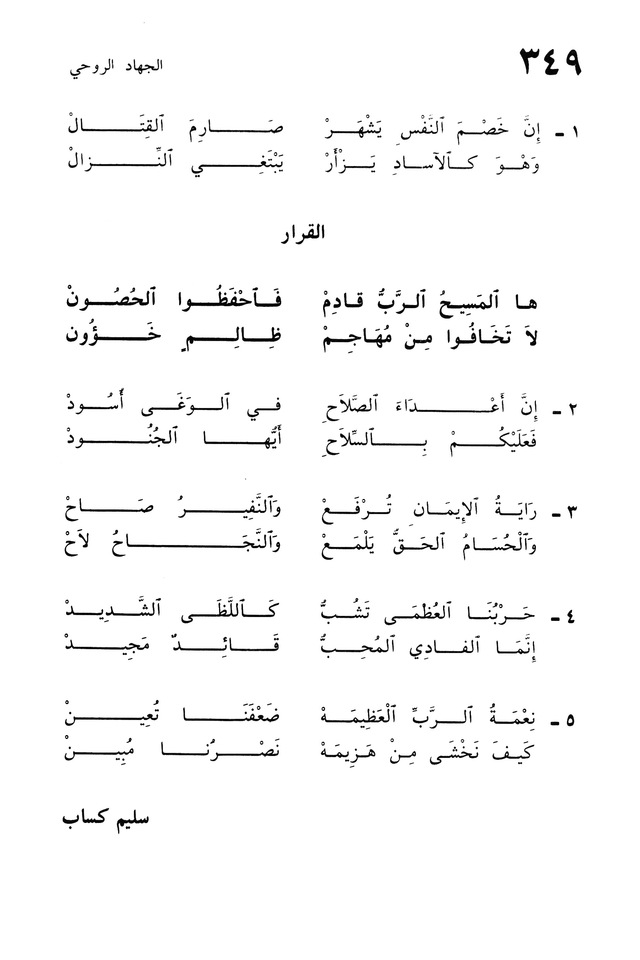 ٣٤٩
الجهاد الروحي
١ ـ إِنَّ خَصْمَ ٱلنَّفْسِ يَشْهَرْ صَارِمَ ٱلقِتَالْ
وَهْوَ كَٱلآسادِ يَزْأَرْ يَبْتَغِي ٱلنِّزالْ
القرار
ها ٱلمَسِيحُ ٱلرَّبُّ قادِمْ فَٱحْفَظُوا ٱلحُصُونْ
لاَ تَخَافُوا مِنْ مُهَاجِمْ ظالِمٍ خَؤُون
٢ ـ إِنَّ أَعْدَاءَ ٱلصَّلاَحِ في ٱلوَغَى أُسُودْ
فَعَلَيْكُمْ بِٱلسِّلاَحِ أَيُّهَا ٱلجُنُودْ
٣ ـ رَايَةُ ٱلإِيمَانِ تُرْفَعْ وَٱلنَّفِيرُ صَاحْ
وَٱلْحُسَامُ ٱلحَقُّ يَلْمَعْ وَٱلنَّجَاحُ لاَحْ
٤ ـ حَرْبُنَا ٱلعُظْمَى تَشُبُّ كَٱللَّظَى ٱلشَّدِيدْ
إِنَّمَا ٱلفَادِي ٱلمُحِبُّ قَائِدٌ مَجِيدْ
٥ ـ نِعْمَةُ ٱلرَّبِّ ٱلعَظِيمَهْ ضَعْفَنَا تُعِينْ
كَيفَ نَخْشَى مِنْ هَزِيمَهْ نَصْرُنا مُبِينْ
سليم كساب